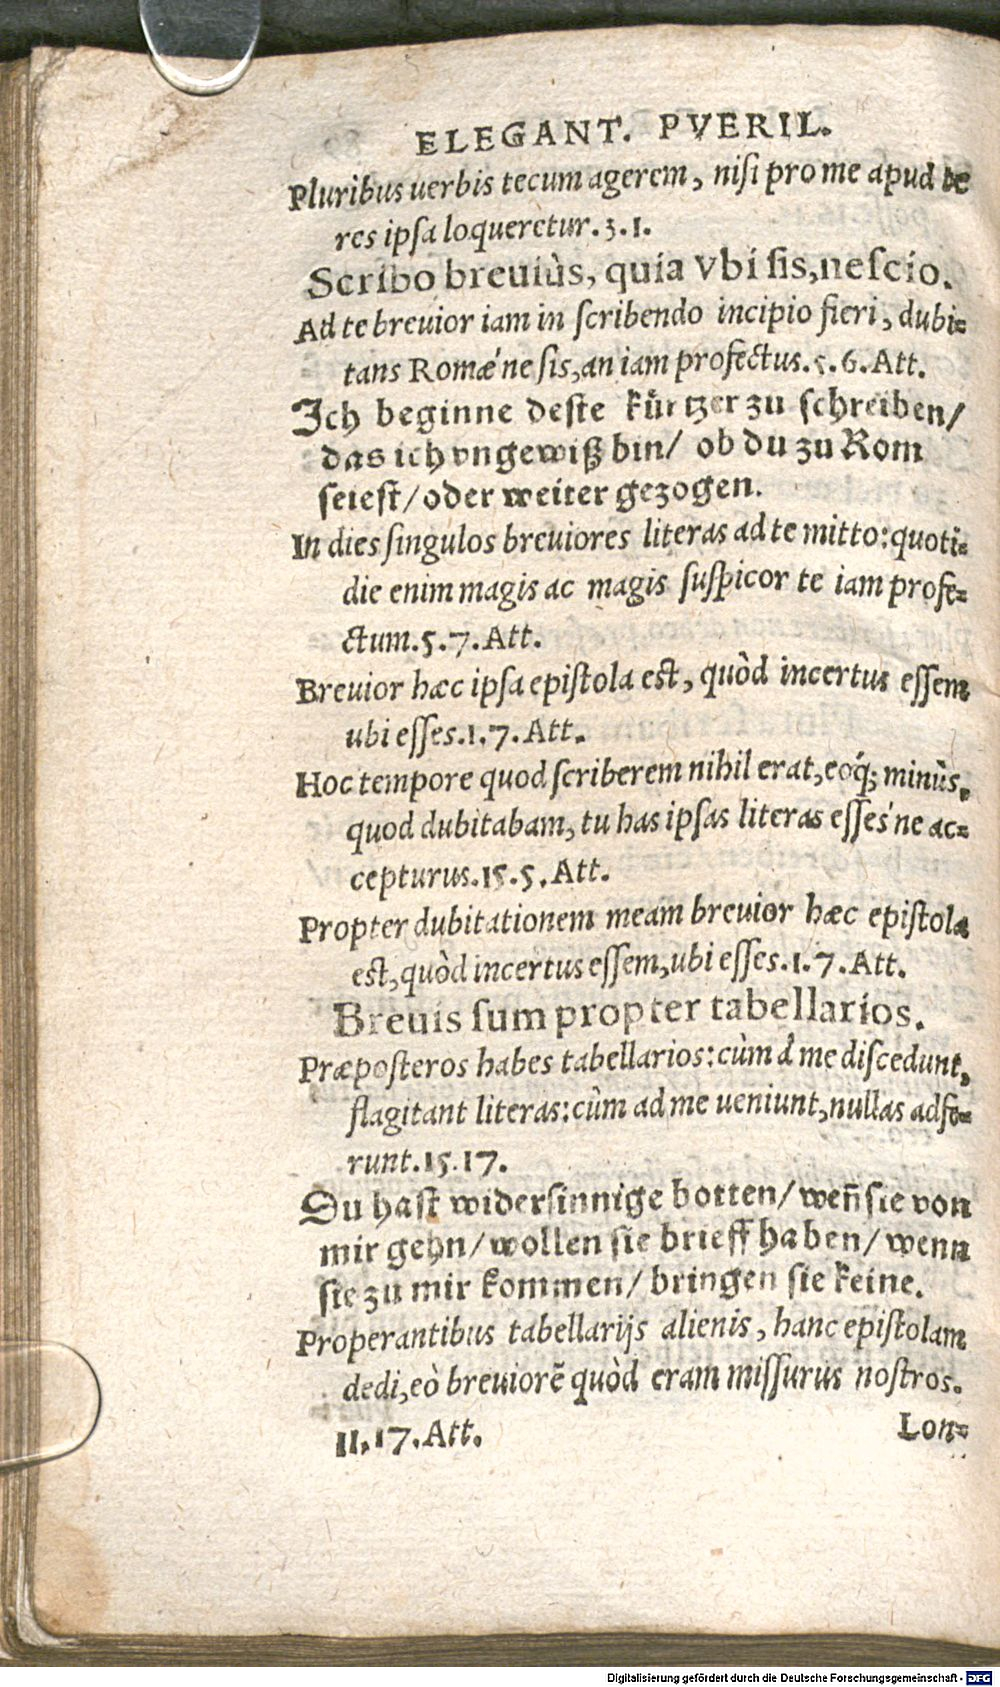 ELEGANT. PVERIL.
Pluribus uerbis tecum agerem, nisi pro me apud te
res ipsa loqueretur.3.1.
Scribo breuiùs, quia vbi sis, nescio.
Ad te breuior iam in scribendo incipio fieri, dubi=
tans Romæ'ne sis, an iam profectus.5.6.Att.
Ich beginne deste kürtzer zu schreiben/
das ich vngewiß bin/ ob du zu Rom
seiest/oder weiter gezogen.
In dies singulos breuiores literas ad te mitto:quoti=
die enim magis ac magis suspicor te iam profe=
ctum.5.7.Att.
Breuior hæc ipsa epistola est, quòd incertus essem
ubi esses.1.7.Att.
Hoc tempore quod scriberem nihil erat, eoq́; minùs,
quod dubitabam, tu has ipsas literas esses'ne ac=
cepturus.15.5.Att.
Propter dubitationem meam breuior hæc epistola
est, quòd incertus essem, ubi esses.1.7.Att.
Breuis sum propter tabellarios.
Præposteros habes tabellarios:cùm à me discedunt,
flagitant literas:cùm ad me ueniunt, nullas adfe=
runt.15.17.
Du hast widersinnige botten/ weñ sie von
mir gehn/ wollen sie brieff haben/ wenn
sie zu mir kommen/ bringen sie keine.
Properantibus tabellarijs alienis, hanc epistolam
dedi, eò breuiorẽ quòd eram missurus nostros.
11.17.Att.
Lon=
Digitalisierung gefördert durch die Deutsche Forschungsgemeinschaft - DFG